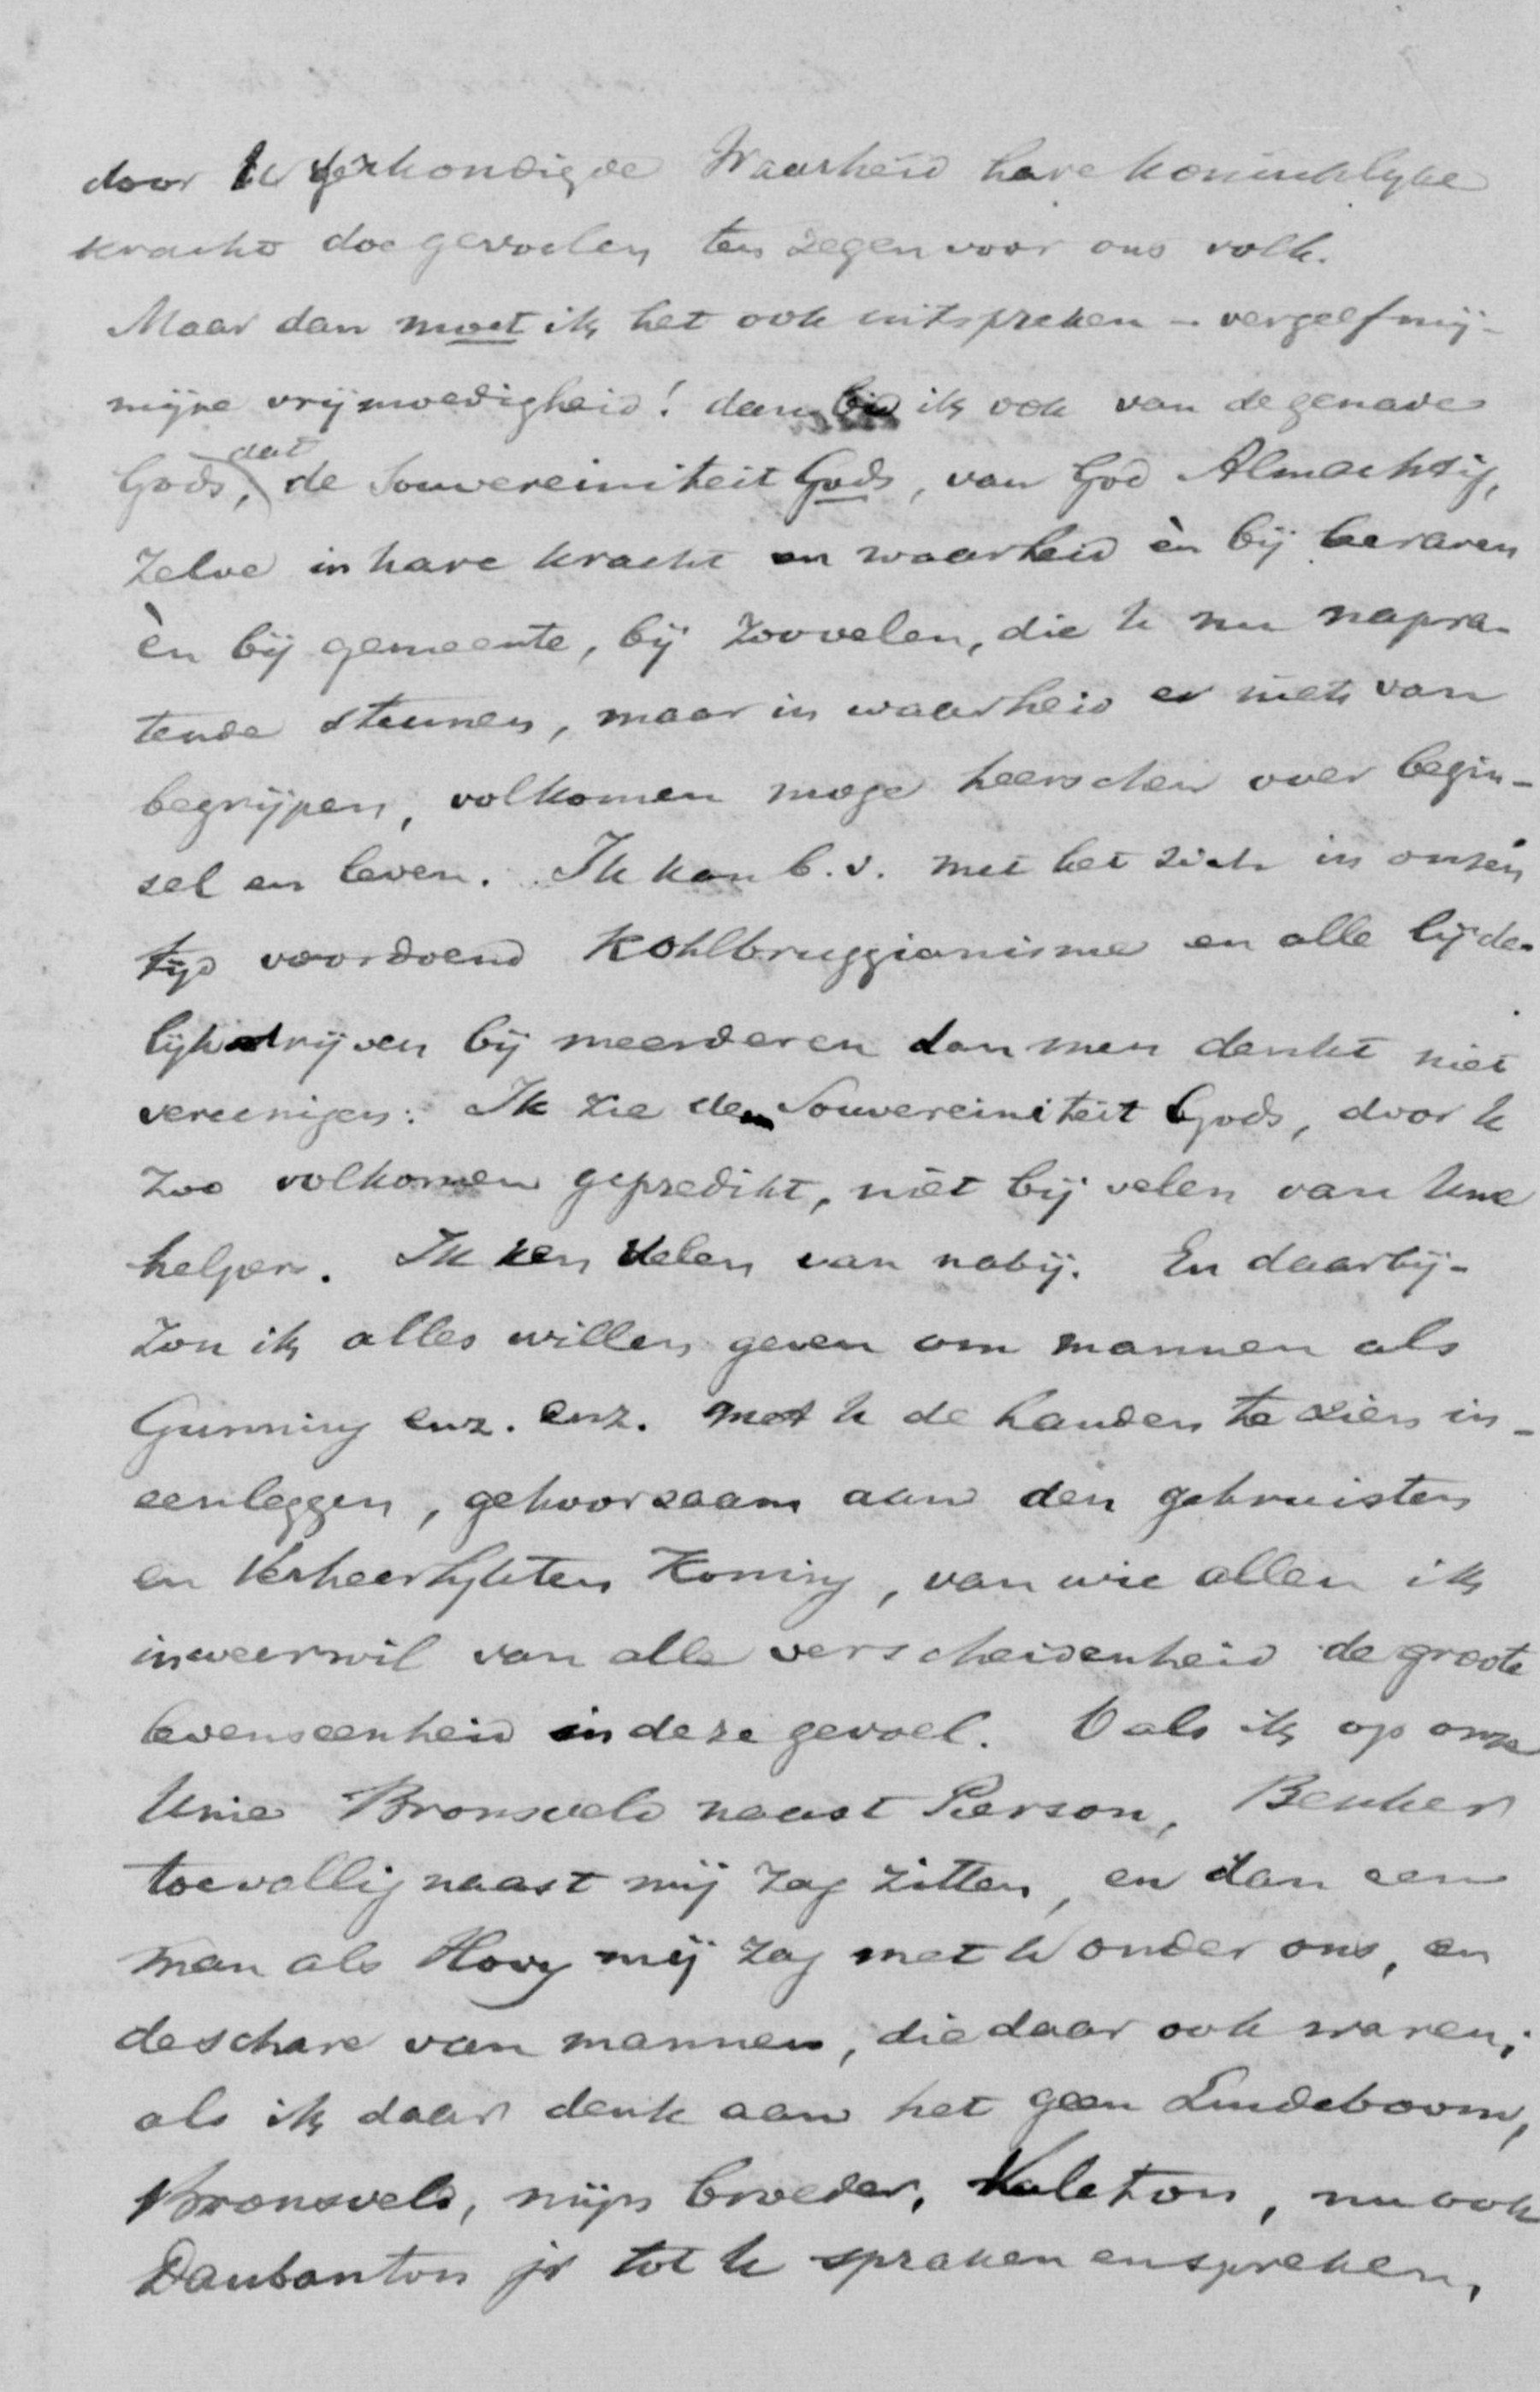 door U verkondigde Waarheid hare koninklyke
kracht doe gevoelen ten zegen voor ons volk.
Maar dan moet ik het ook uitspreken – vergeef mij –
mijne vrijmoedigheid! dan bid ik ook van de genade
Gods, dat de Souvereiniteit Gods, van God Almachtig,
zelve in hare kracht en waarheid èn bij leeraren
èn bij gemeente, bij zoovelen, die U nu napra-
tende steunen, maar in waarheid er niets van
begrijpen, volkomen moge heerschen over begin-
sel en leven. Ik kan b.v. met het zich in onzen
tijd voordoend Kohlbruggianisme en alle lijde-
lijk drijven bij meerderen dan men denkt niet
vereenigen: Ik zie de Souvereiniteit Gods, door U
zoo volkomen gepredikt, niet bij velen van Uwe
helpers. Ik ken velen van nabij. En daarbij –
zou ik alles willen geven om mannen als
Gunning enz. enz. met U de handen te zien in-
eenleggen, gehoorzaam aan den gekruisten
en Verheerlykten Koning, van wie allen ik
in weerwil van alle verscheidenheid de groote
levenseenheid in deze gevoel. O als ik op onze
Unie Bronsveld naast Pierson, Beuker
toevallig naast mij zag zitten, en dan een
man als Hovy mij zag met U onder ons, en
de schare van mannen, die daar ook waren;
als ik daar denk aan het geen Lindeboom,
Bronsveld, mijn broeder, Valeton, nu ook
Daubanton jr tot U spraken en spreken,